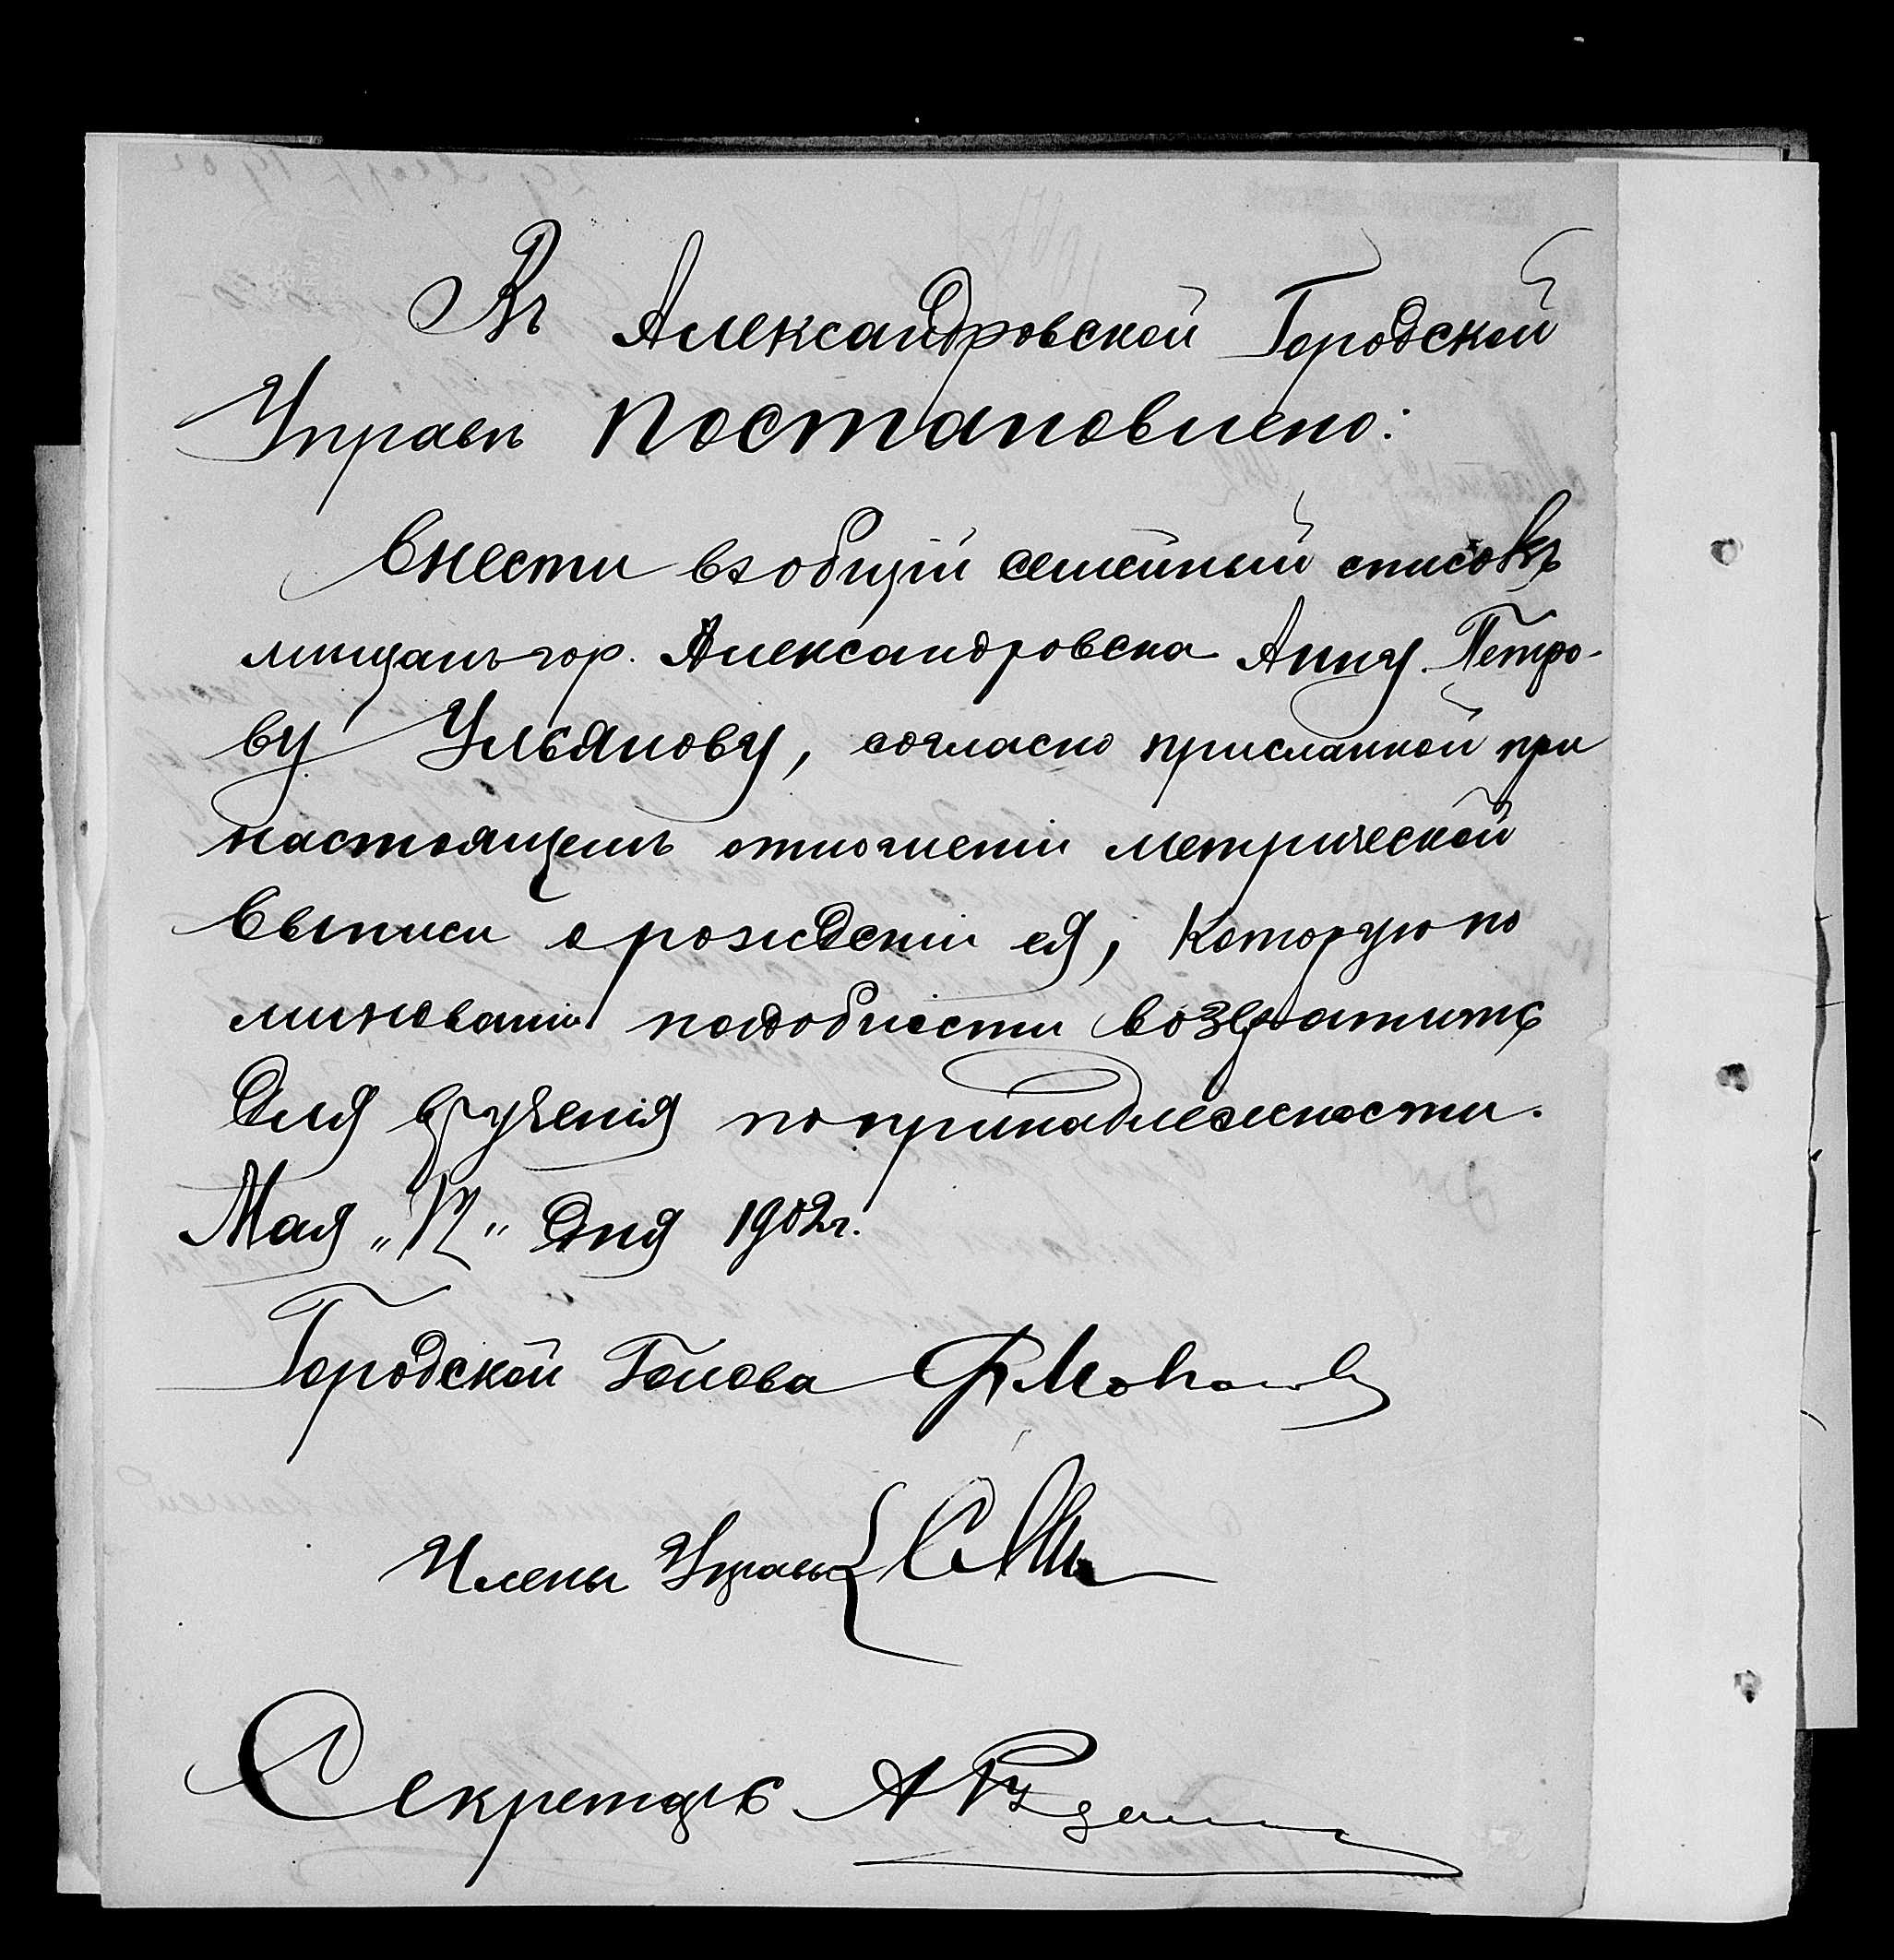 Въ Александровской Городской
Управѣ постановлено:
Внести въ общій семейный списокъ
мѣщанъ гор. Александровска Анну Петро-
ву Ульянову, согласно присланной при
настоящемъ отношеніи метрической
выписи о рожденіи ея, которую по
минованіи надобности возвратить
для врученія по принадлежности.
Мая „12“ дня 1902 г.
Городской Голова
Члены Управы
Секретарь А